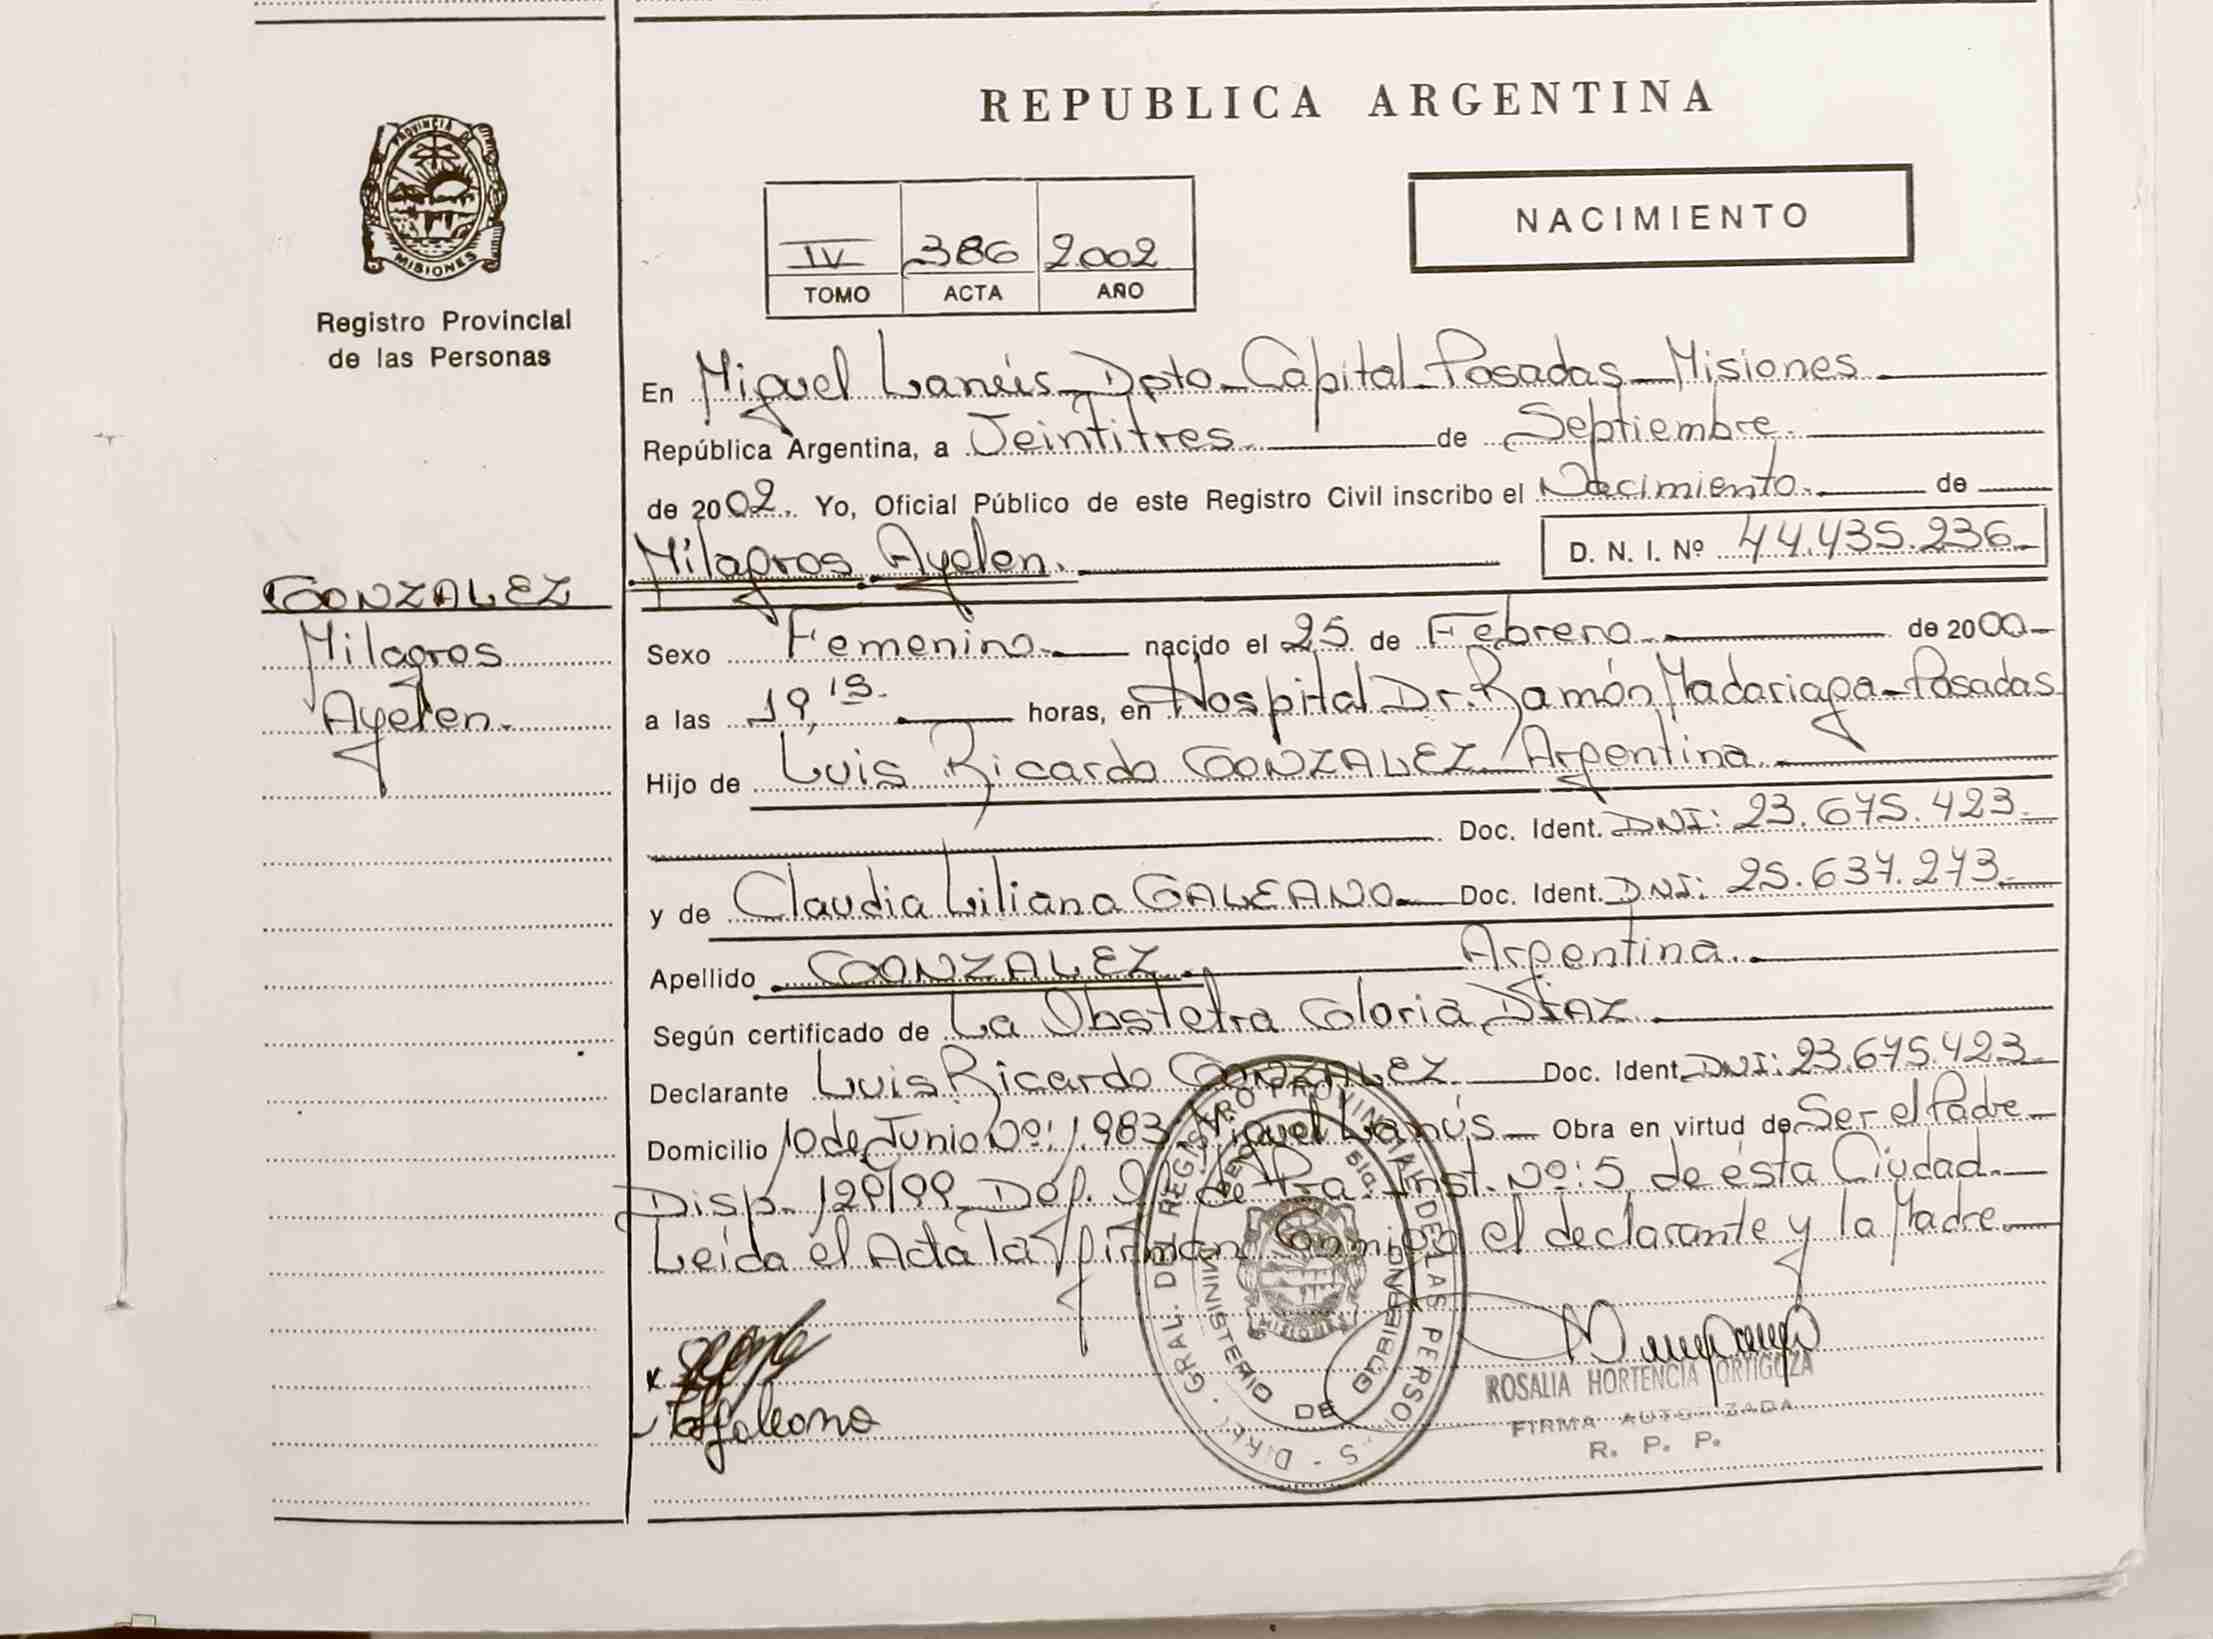 REPUBLICA ARGENTINA
PROVINCIA DE
MISIONES
Registro Provincial
de las Personas
NACIMIENTO
IV 386 2002
TOMO ACTA AÑO
En Miguel Lanús - Dpto - Capital - Posadas - Misiones
República Argentina, a Veintitres de Septiembre.
de 2002. Yo, Oficial Público de este Registro Civil inscribo el Nacimiento. de
Milagros Ayelen. D. N. I. Nº 44.435.236
GONZALEZ
Milagros
Ayelen.
Sexo Femenino nacido el 25 de Febrero de 2000
a las 19,15 horas, en Hospital Dr. Ramón Madariaga - Posadas
Hijo de Luis Ricardo GONZALEZ / Argentina
Doc. Ident. DNI: 23.675.423
y de Claudia Liliana GALEANO Doc. Ident. DNI: 25.637.273
Apellido GONZALEZ. Argentina.
Según certificado de La Obstetra Gloria DIAZ
Declarante Luis Ricardo GONZALEZ Doc. Ident. DNI: 23.675.423
Domicilio 10 de Junio Nº: 1.983 - Miguel Lanús - Obra en virtud de Ser el Padre
Disp. 129/99 Def. Of. de 1ra. Inst. Nº: 5 de ésta Ciudad.
Leída el Acta la firman Conmigo el declarante y la Madre
Galeano
DIREC. GRAL. DEL REGISTRO PROVINCIAL DE LAS PERSONAS
MINISTERIO DE GOBIERNO
MISIONES
ROSALIA HORTENCIA ORTIGOZA
FIRMA AUTORIZADA
R. P. P.